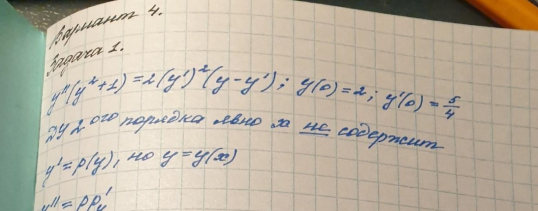 Вариант 4.
Задача 1.
y''(y²+1)=2(y')²(y-y'); y(0)=2; y'(0)=5/4
ДУ 2ого порядка явно x не содержит
y'=p(y), но y=y(x)
y''=pp'y